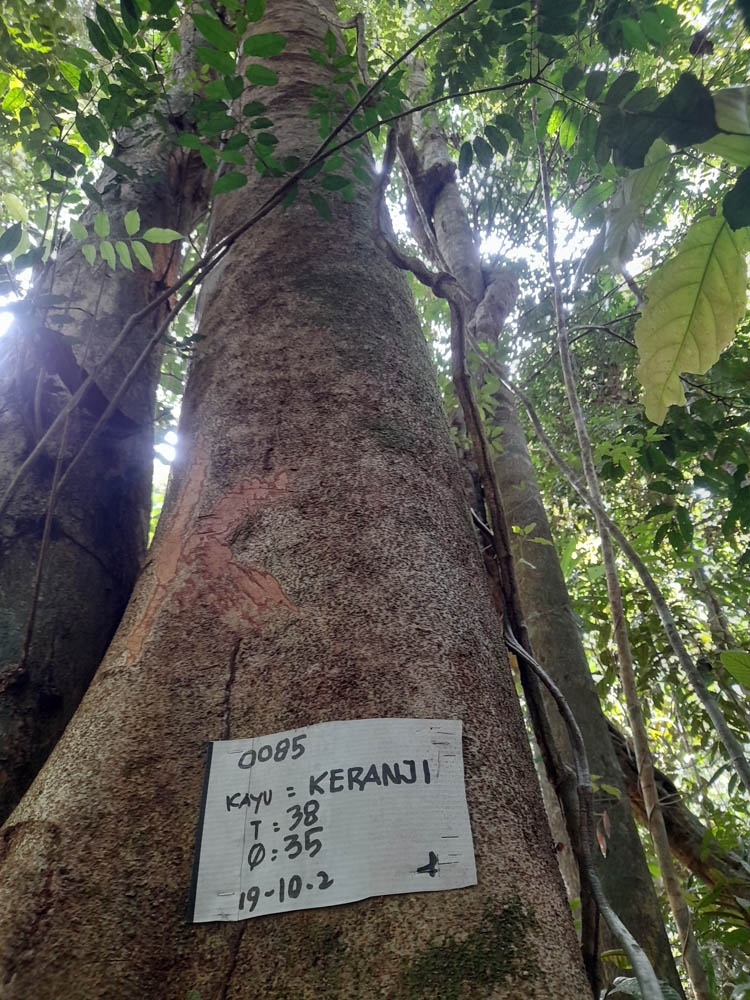 0085
KAYU = KERANJI
T : 38
Ø : 35
19-10.2